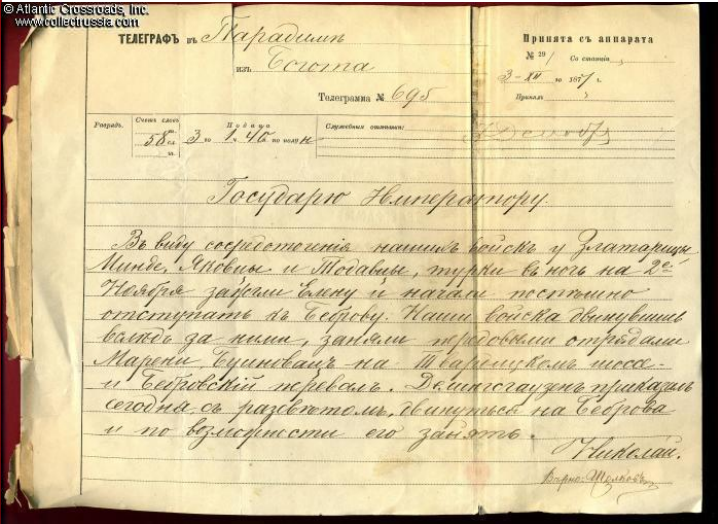 © Atlantic Crossroads, Inc.
www.collectrossia.com
ТЕЛЕГРАФЪ въ Парадимъ
изъ Богота
Телеграмма № 695
Принята съ аппарата
№ 291 Со станціи
3-XII го 1877 г.
Принялъ
Разрядъ.
Счетъ словъ
58 сл.
Подана
3 го 1.40 по полун
Служебныя отмѣтки:
Государю Императору.
Въ виду сосредоточенія нашихъ войскъ у Златарицы
Минде, Яковцы и Тодавцы, турки въ ночь на 2ое
Ноября зажгли Елену и начали поспѣшно
отступать къ Беброву. Наши войска двинувшись
вслѣдъ за ними, заняли передовыми отрядами
Марени, Буиновацъ на Твардицкомъ шоссе
и Бебровскій перевалъ. Делингсгаузенъ приказалъ
сегодня, съ разсвѣтомъ, двинуться на Беброва
и по возможности его занять.
Николай.
Вѣрно: